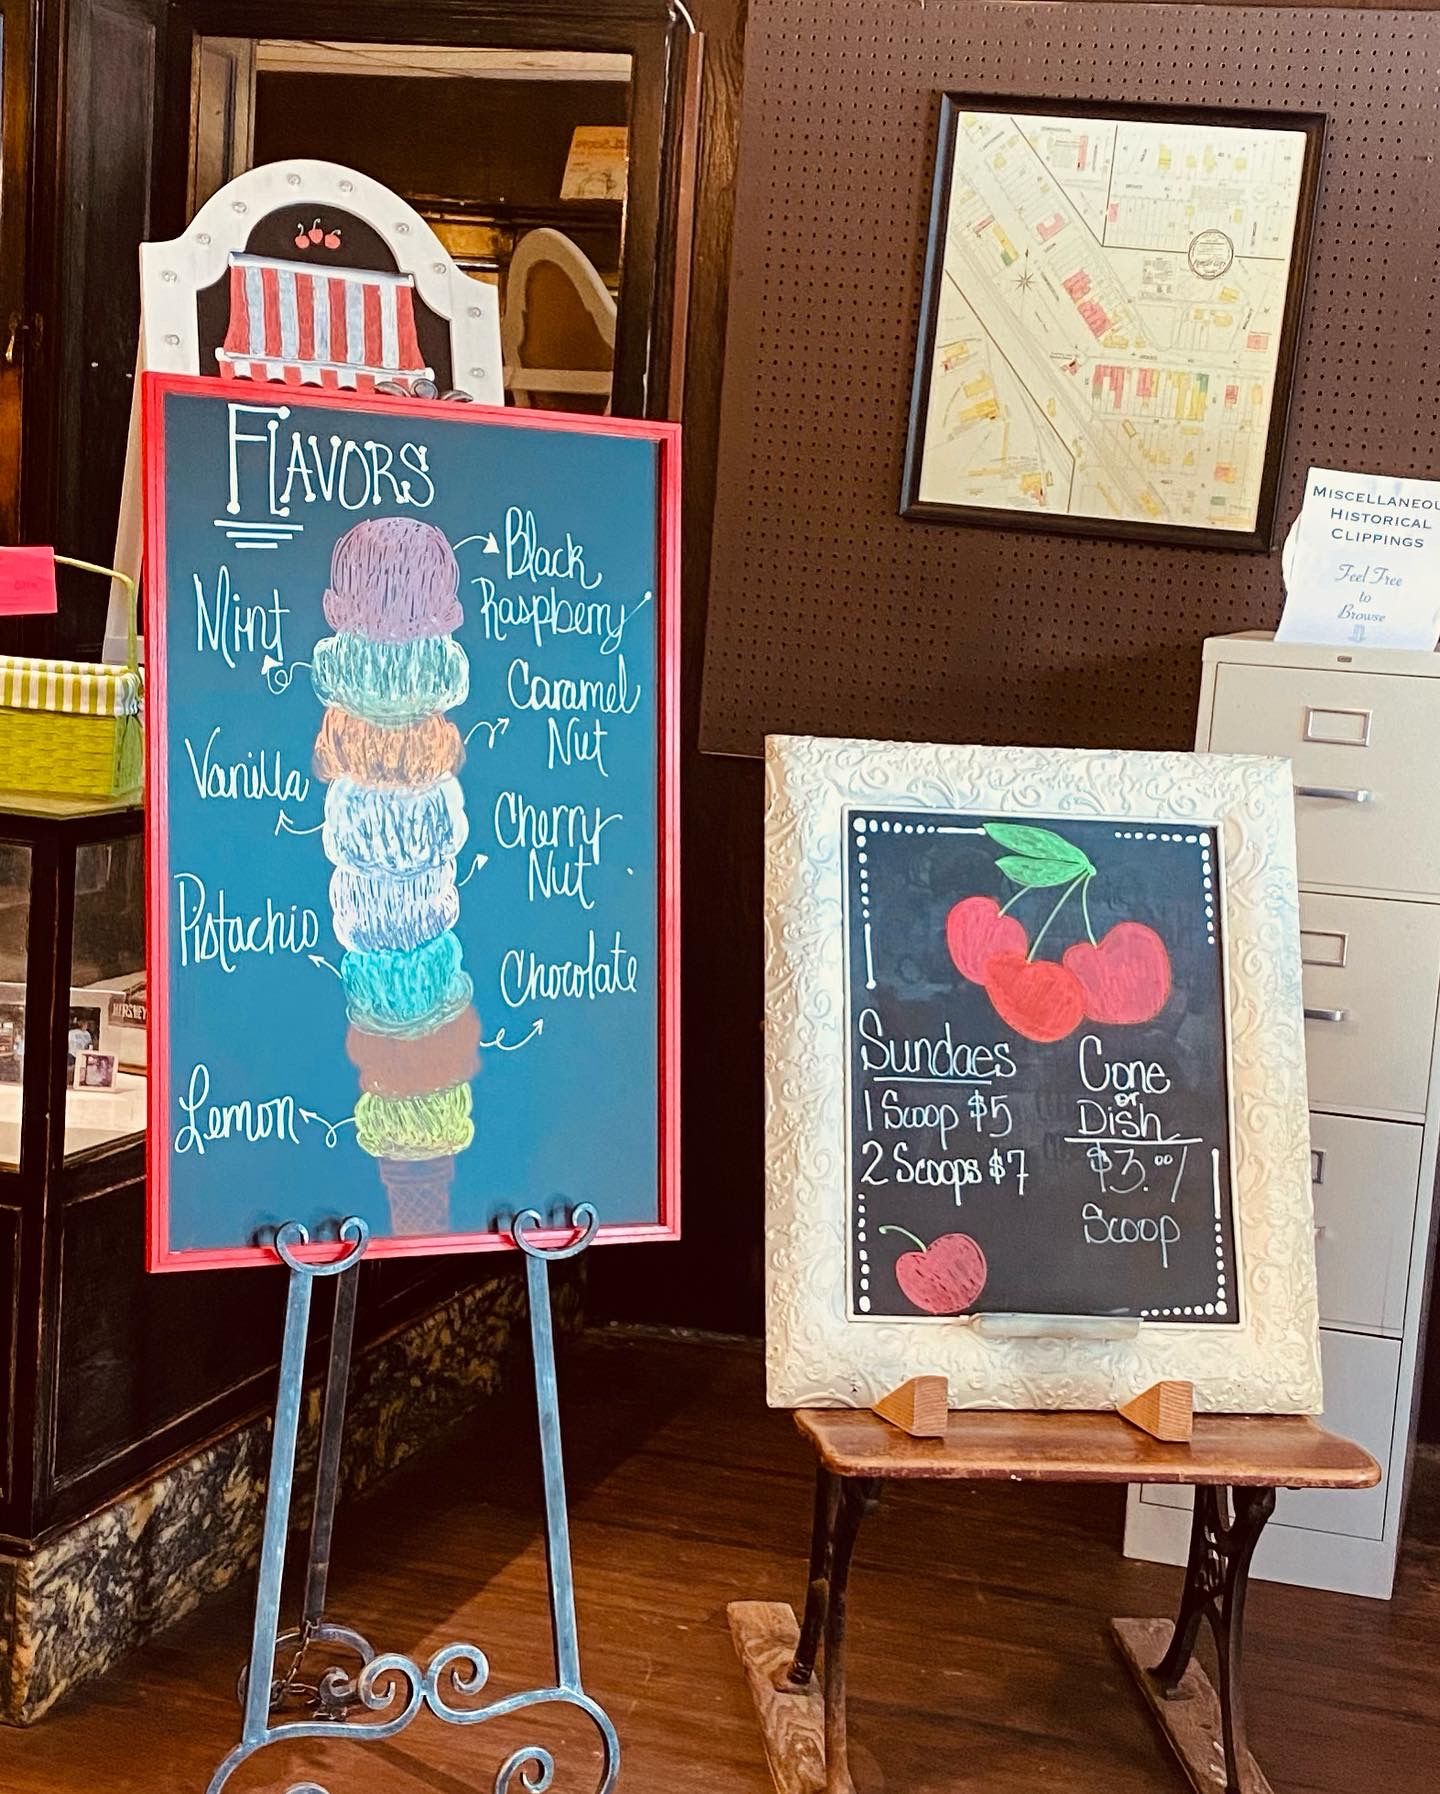 Flavors
Black
Raspberry
Mint
Caramel
Nut
Vanilla
Cherry
Nut
Pistachio
Chocolate
Lemon
Sundaes
1 Scoop $5
2 Scoops $7
Cone
or
Dish
$3.00/
Scoop
Miscellaneou
Historical
Clippings
Feel Free
to
Browse
HERSHEY